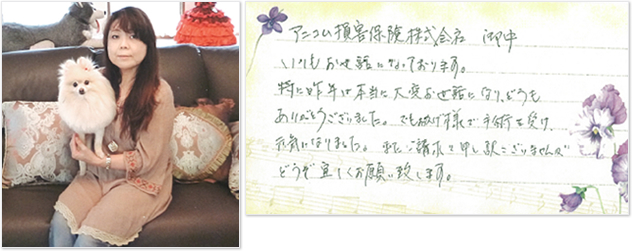 アニコム損害保険株式会社 御中
いつもお世話になっております。
特に昨年は本当に大変お世話になり、どうも
ありがとうございました。でもお陰様で手術を受け
元気になりました。またご請求で申し訳ございませんが
どうぞ宜しくお願い致します。